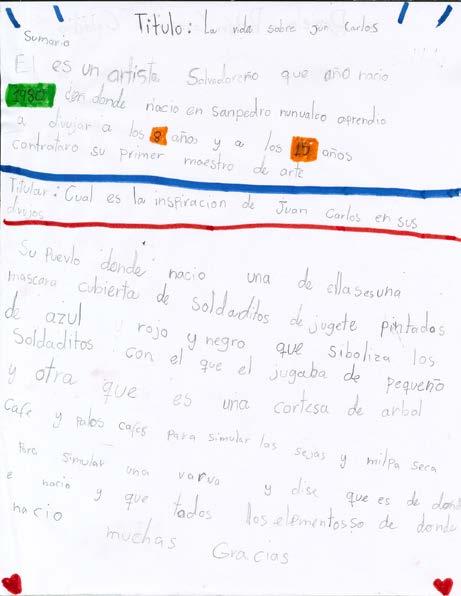 Titulo: La vida sobre Jun Carlos
Sumario
El es un artista Salvadoreño que año nacio
1980 den donde nacio en sanpedro nunualco aprendio
a divujar a los 8 años y a los años
contrataro su primer maestro de arte
Titular: Cual es la inspiracion de Juan Carlos en sus
divujos
Su Puevlo donde nacio una de ellasesuna
mascara cubierta de soldarditos de jugete pintados
de azul rojo y negro que siboliza los
Soldaditos con el que el jugaba de pequeño
y otra que es una cortesa de arbol
Cafe y palos cafes para simular las sejas y milpa seca
Para simular una varva y dise que es de dond
e nacio y que todos los elementosso de donde
nacio
muchas Gracias